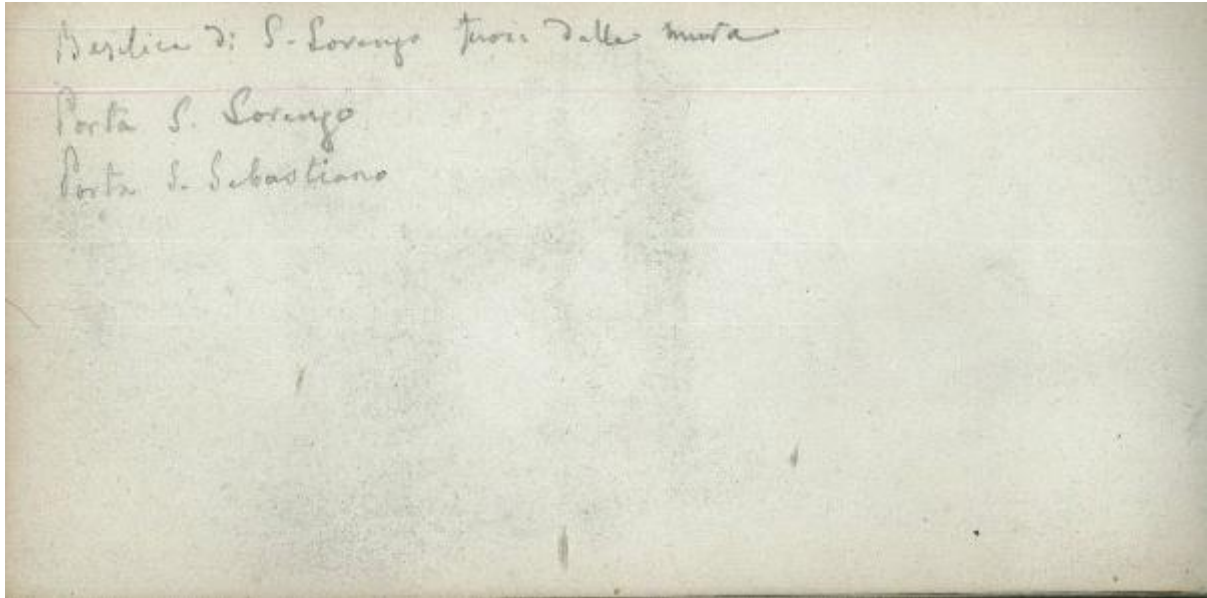 Basilica di S. Lorenzo fuori dalle mura
Porta S. Lorenzo
Porta S. Sebastiano